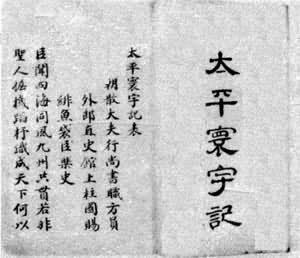 太平寰宇記
太平寰宇記表
朝散大夫行尚書職方員
外郎直史館上柱國賜
緋魚袋臣樂史
臣聞四海同風九州共貫若非
聖人握機蹈杼織成天下何以